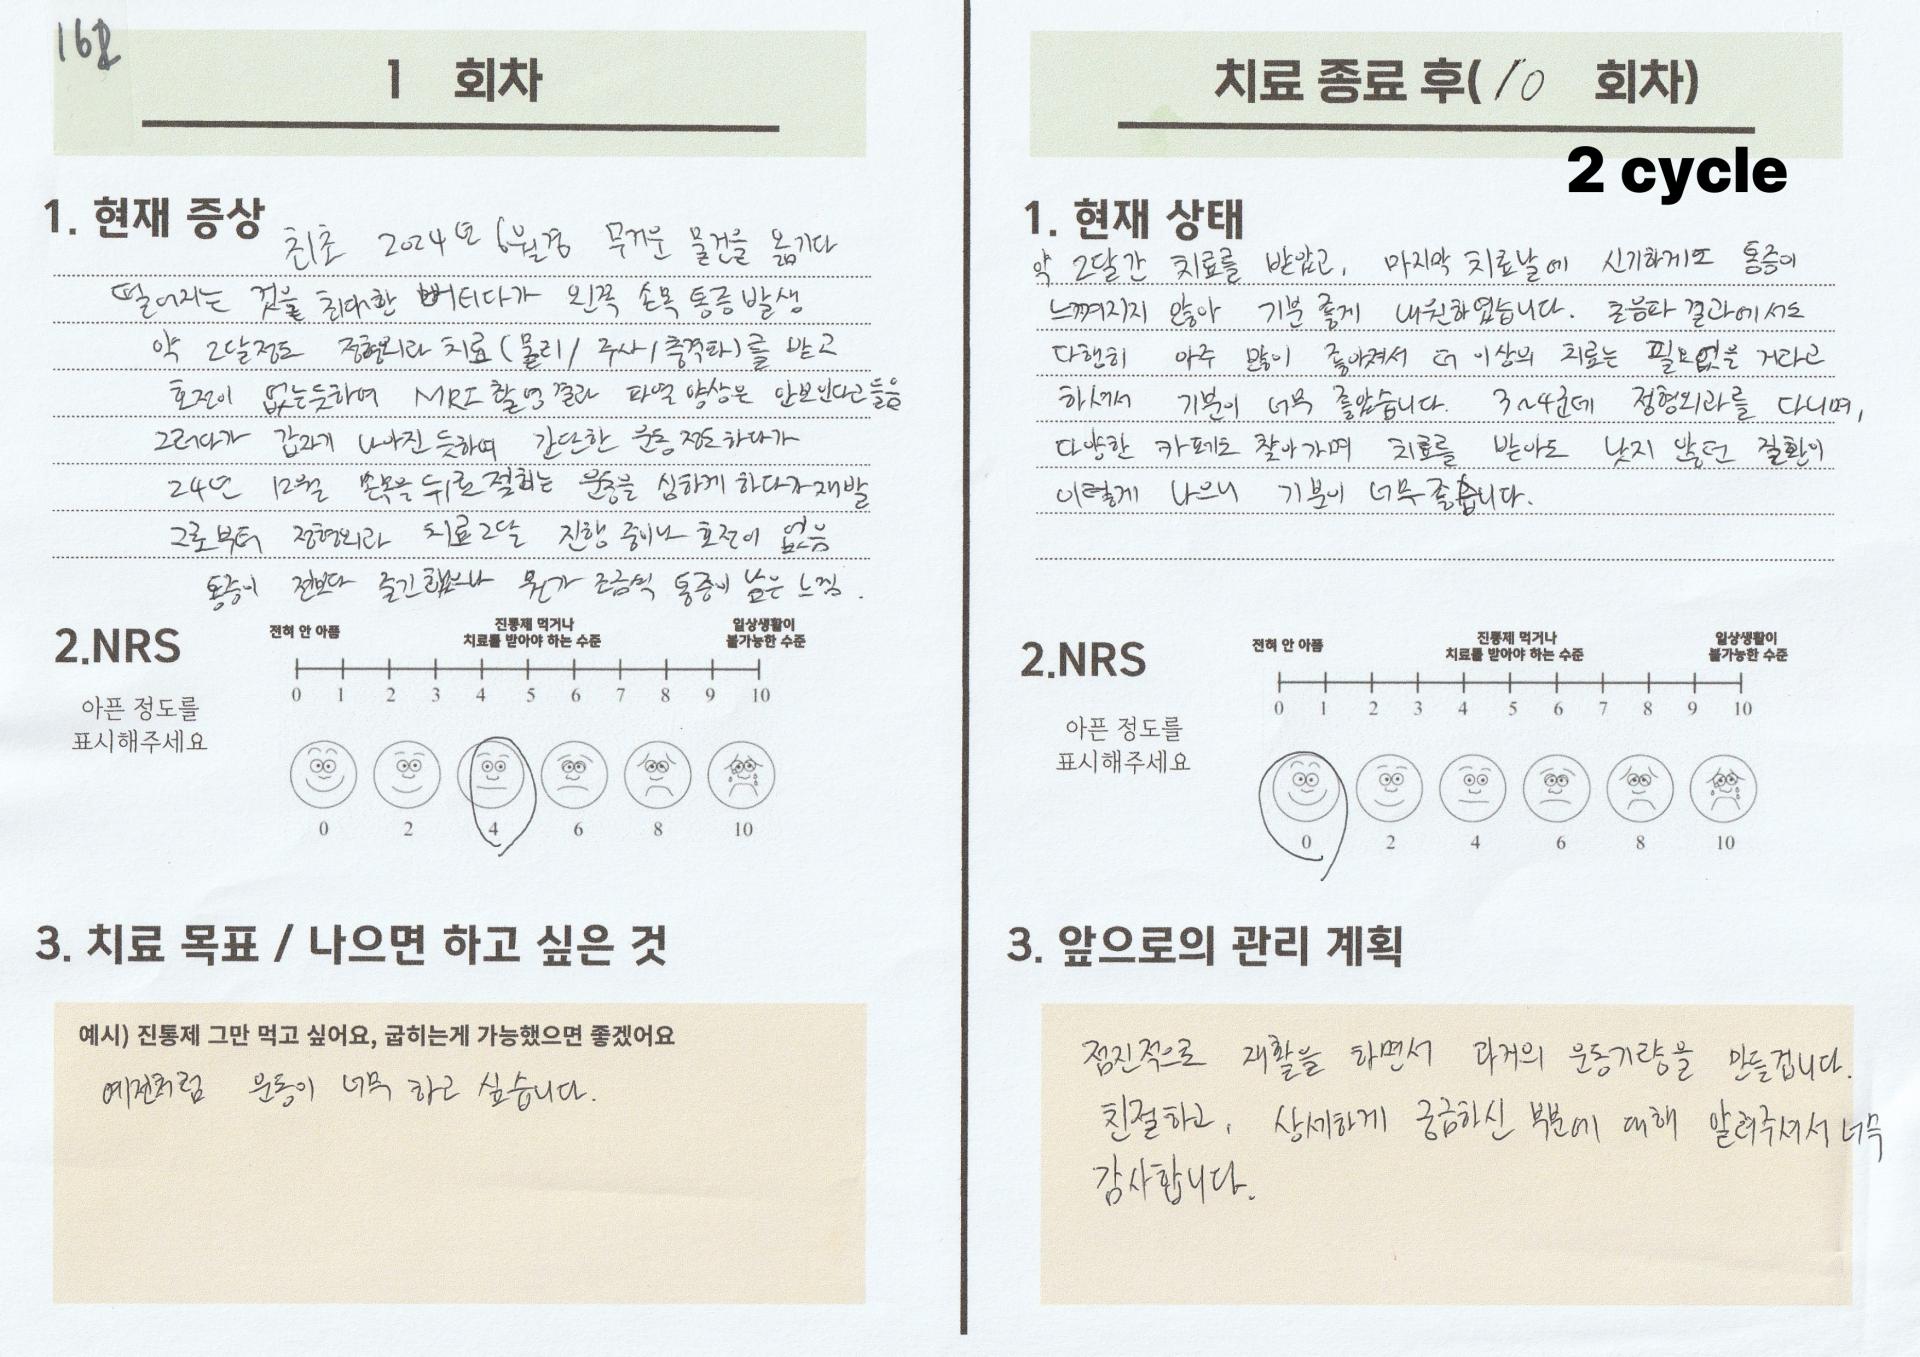 16호
1 회차
1. 현재 증상
최초 2024년 6월경 무거운 물건을 옮기다
떨어지는 것을 최대한 버티다가 왼쪽 손목 통증 발생
약 2달정도 정형외과 치료(물리/주사/충격파)를 받고
호전이 없는듯하여 MRI 촬영 결과 파열 양상은 안보인다고 들음
그러다가 갑자기 나아진 듯하여 간단한 운동 정도 하다가
24년 12월 손목을 뒤로 젖히는 운동을 심하게 하다가 재발
그로부터 정형외과 치료 2달 진행 중이나 호전이 없음
통증이 전보다 줄긴 했으나 뭔가 조금씩 통증이 남은 느낌.
2.NRS
아픈 정도를
표시해주세요
전혀 안 아픔
진통제 먹거나
치료를 받아야 하는 수준
일상생활이
불가능한 수준
0 1 2 3 4 5 6 7 8 9 10
0 2 4 6 8 10
3. 치료 목표 / 나으면 하고 싶은 것
예시) 진통제 그만 먹고 싶어요, 굽히는게 가능했으면 좋겠어요
예전처럼 운동이 너무 하고 싶습니다.
치료 종료 후( 10 회차)
2 cycle
1. 현재 상태
약 2달간 치료를 받았고, 마지막 치료날에 신기하게도 통증이
느껴지지 않아 기분 좋게 내원하였습니다. 초음파 결과에서도
다행히 아주 많이 좋아져서 더 이상의 치료는 필요없을 거라고
하셔서 기분이 너무 좋았습니다. 3~4군데 정형외과를 다니며,
다양한 카페도 찾아가며 치료를 받아도 낫지 않던 질환이
이렇게 나으니 기분이 너무 좋습니다.
2.NRS
아픈 정도를
표시해주세요
전혀 안 아픔
진통제 먹거나
치료를 받아야 하는 수준
일상생활이
불가능한 수준
0 1 2 3 4 5 6 7 8 9 10
0 2 4 6 8 10
3. 앞으로의 관리 계획
점진적으로 재활을 하면서 과거의 운동기량을 만들겁니다.
친절하고, 상세하게 궁금하신 부분에 대해 알려주셔서 너무
감사합니다.